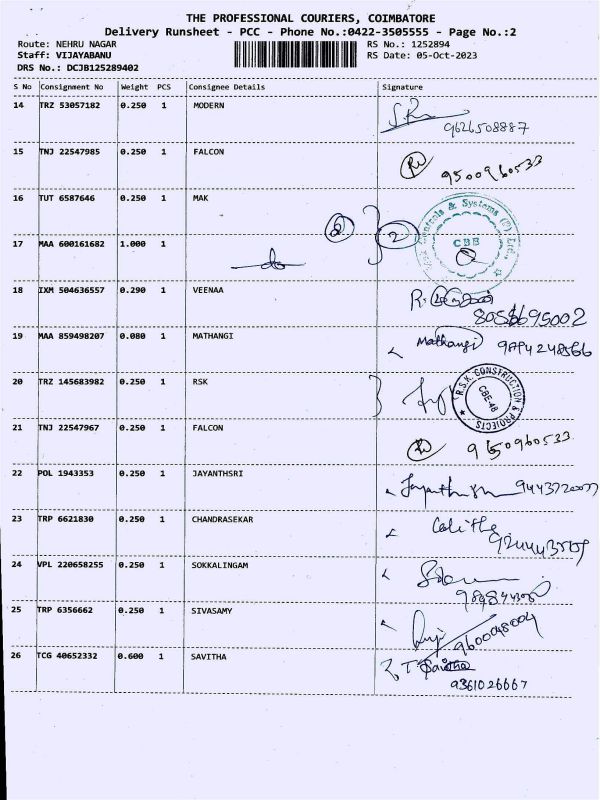 THE PROFESSIONAL COURIERS, COIMBATORE
Delivery Runsheet - PCC - Phone No.:0422-3505555 - Page No.:2
Route: NEHRU NAGAR RS No.: 1252894
Staff: VIJAYABANU RS Date: 05-Oct-2023
DRS No.: DCJB125289402
S No Consignment No Weight PCS Consignee Details Signature
14 TRZ 53057182 0.250 1 MODERN
9626508887
15 TNJ 22547985 0.250 1 FALCON
9500960533
16 TUT 6587646 0.250 1 MAK
& Systems (P) Ltd.
2 2
17 MAA 600161682 1.000 1
CBE
18 IXM 504636557 0.290 1 VEENAA
19 MAA 859498207 0.080 1 MATHANGI Mathangi
20 TRZ 145683982 0.250 1 RSK
R.S.K CONSTRUCTION & PROJECTS
CBE-48
21 TNJ 22547967 0.250 1 FALCON
22 POL 1943353 0.250 1 JAYANTHSRI
23 TRP 6621830 0.250 1 CHANDRASEKAR
24 VPL 220658255 0.250 1 SOKKALINGAM
25 TRP 6356662 0.250 1 SIVASAMY
9600048004
26 TCG 40652332 0.600 1 SAVITHA
9361026667